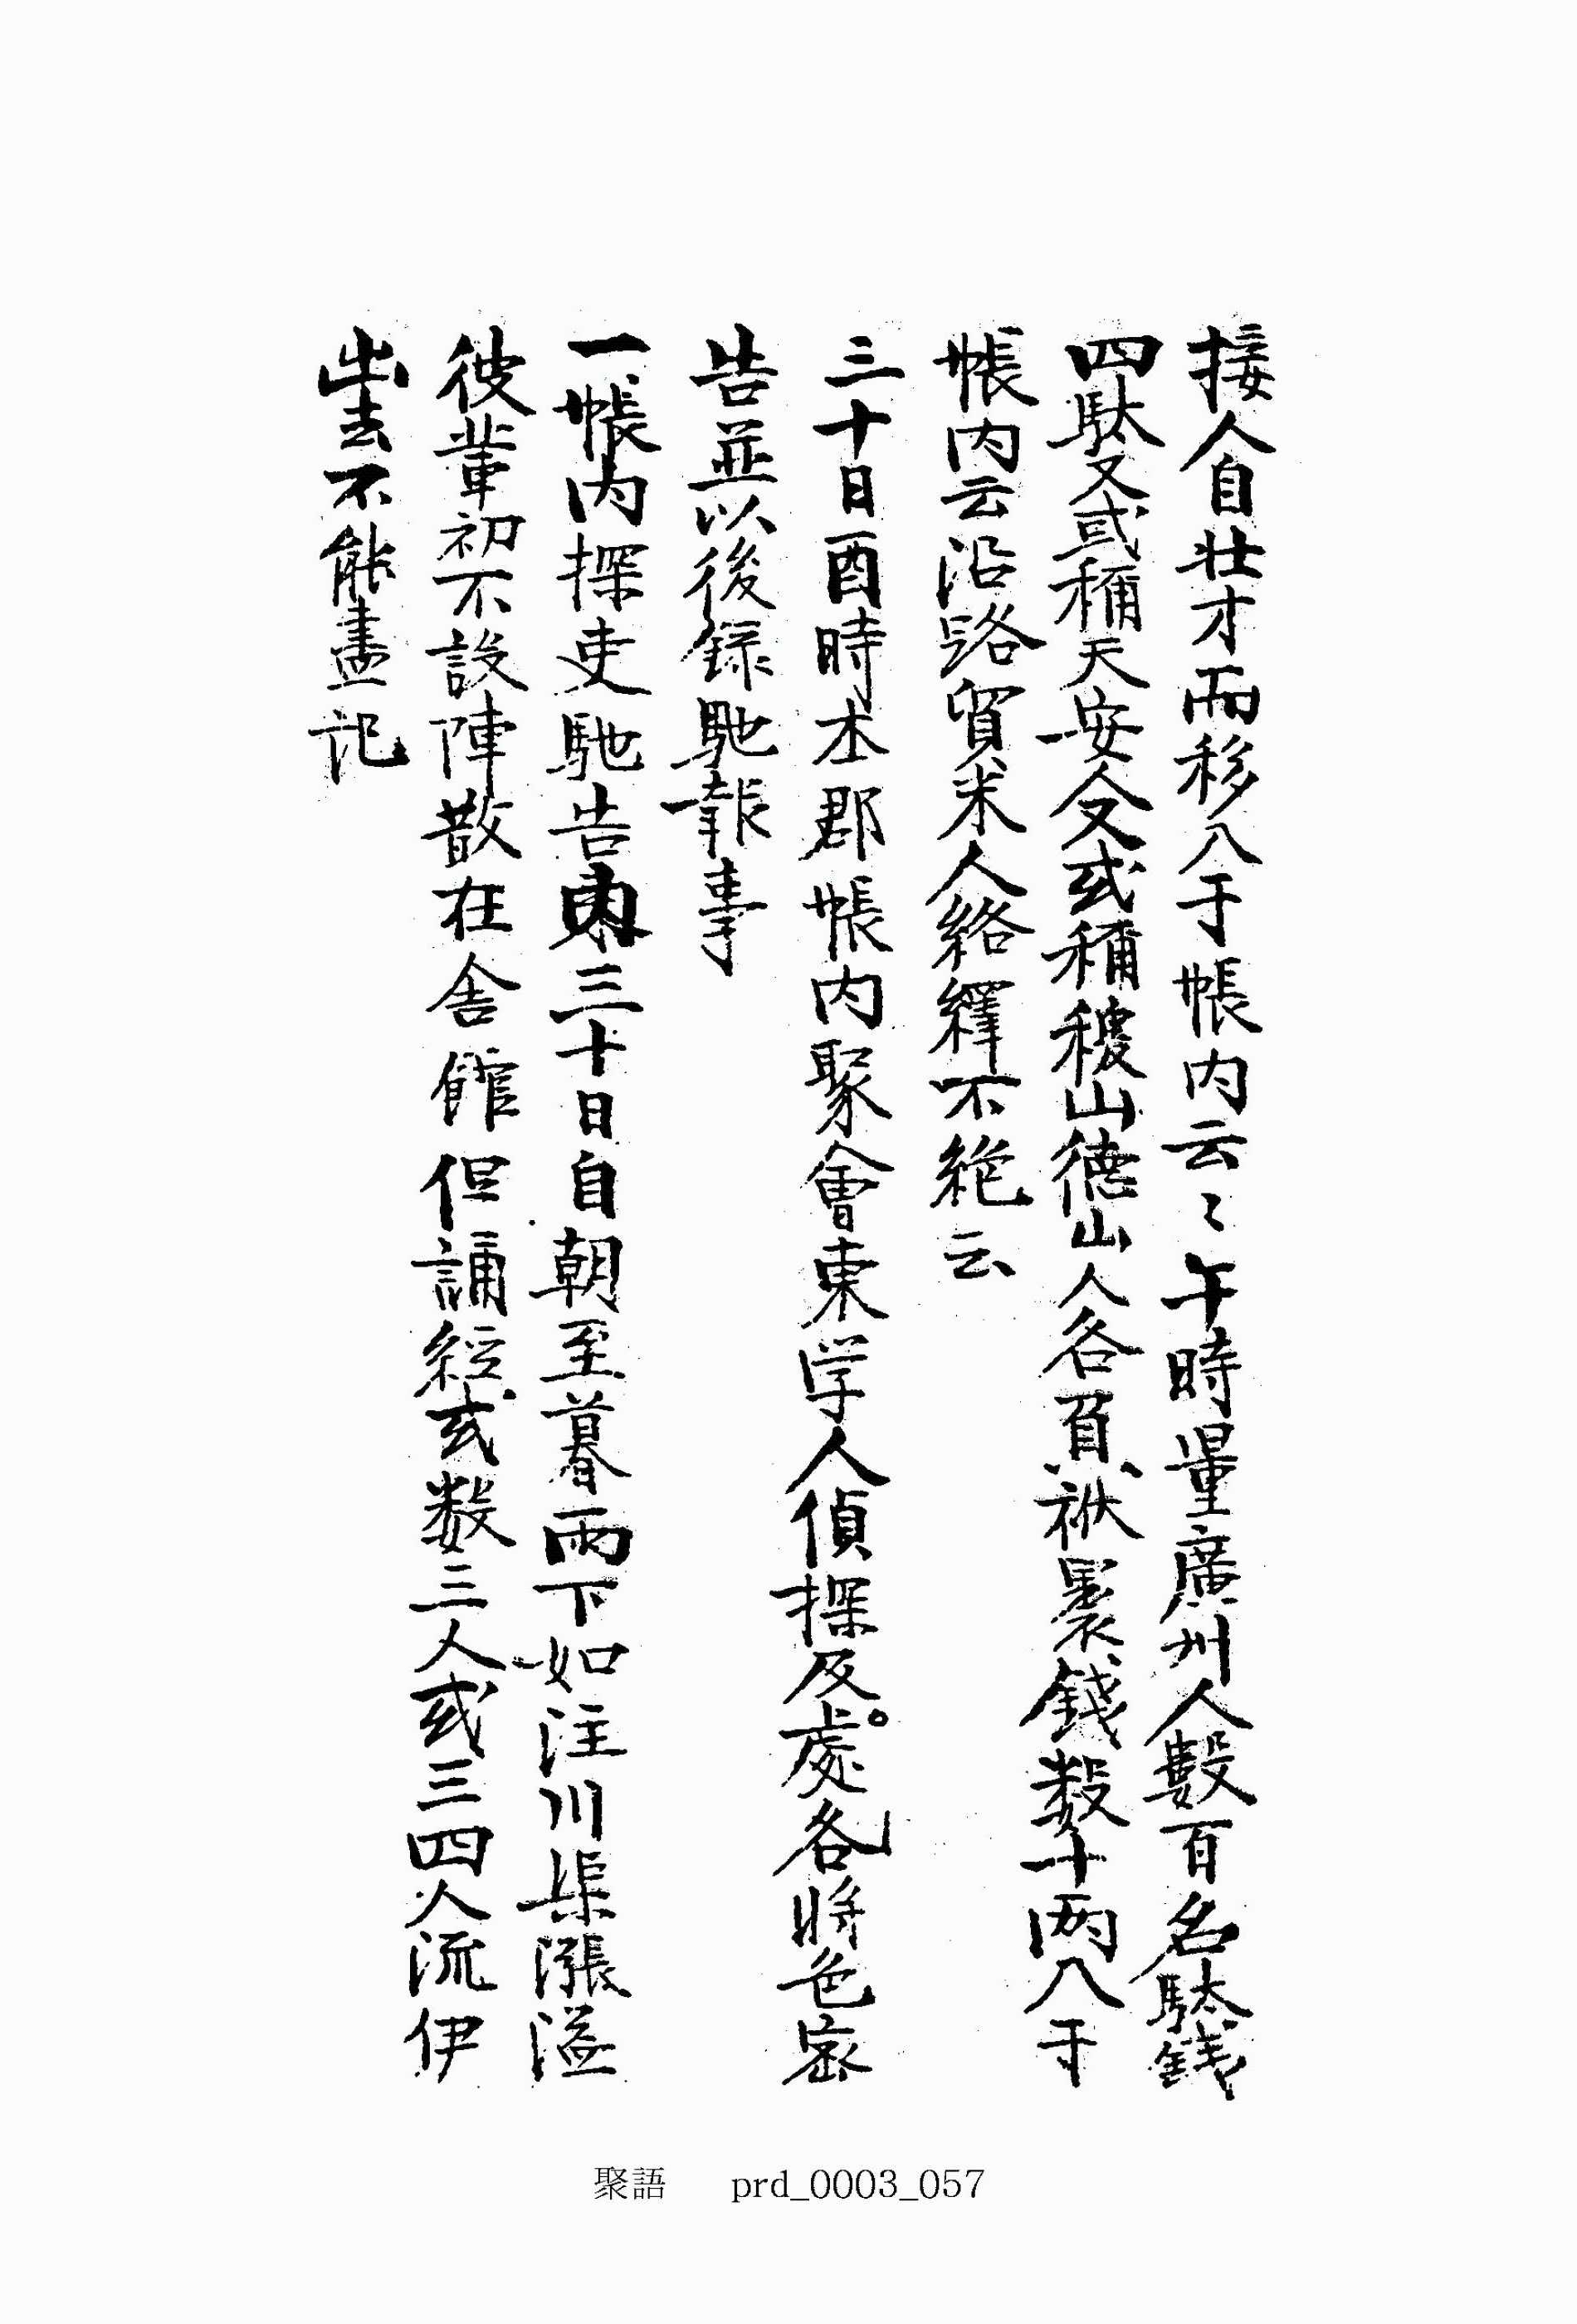 接人自壯才而移入于帳內云〻午時量廣州人數百名駄錢
四駄又或稱天安人又或稱稷山德山人各負袱裹錢數十兩入于
帳內云沿路貿米人絡繹不絶云
三十日酉時本郡帳內聚會東学人偵探及處各將色密
告並以後錄馳報事
一帳內探吏馳告內三十日自朝至暮雨下如注川渠漲溢
彼輩初不設陣散在舍館但誦經或数三人或三四人流伊
出去不能盡記
聚語 prd_0003_057